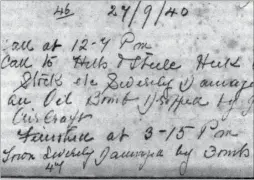 46 27/9/40
Call at 12-7 Pm
Call to Hills & Steele
Stock etc Severly Damaged
an Oil Bomb Dropped by
Aircraft
Finished at 3-15 Pm
Town Severly Damaged by Bombs
47